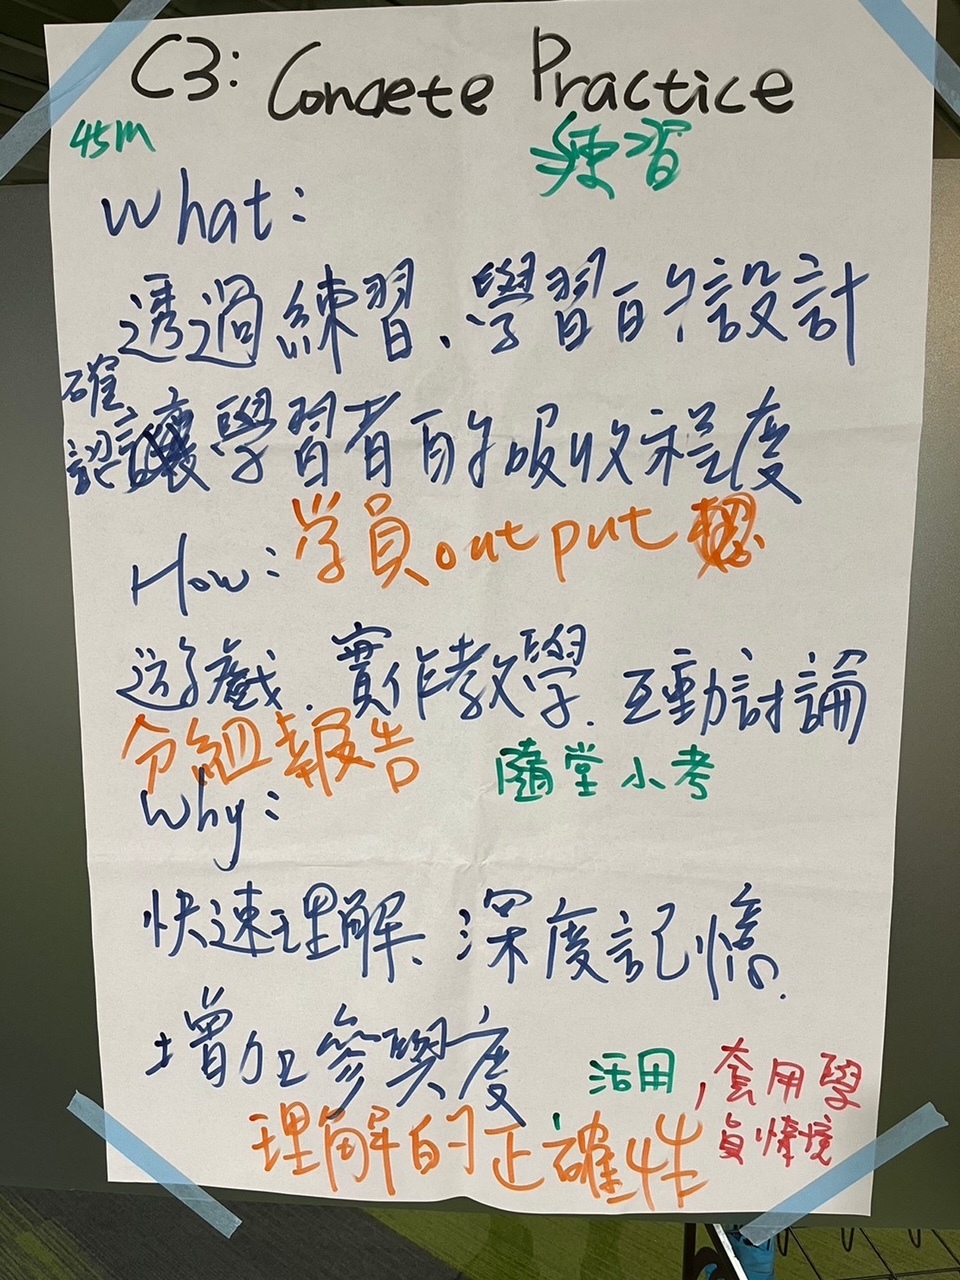 C3: Concete Practice
45M
練習
What:
透過練習、學習的設計
確認學習者的吸收程度
How: 学員output
遊戲、實作教學、互動討論
分組報告 隨堂小考
Why:
快速理解、深度記憶、
增加參與度、
活用,套用學員情境
理解的正確性